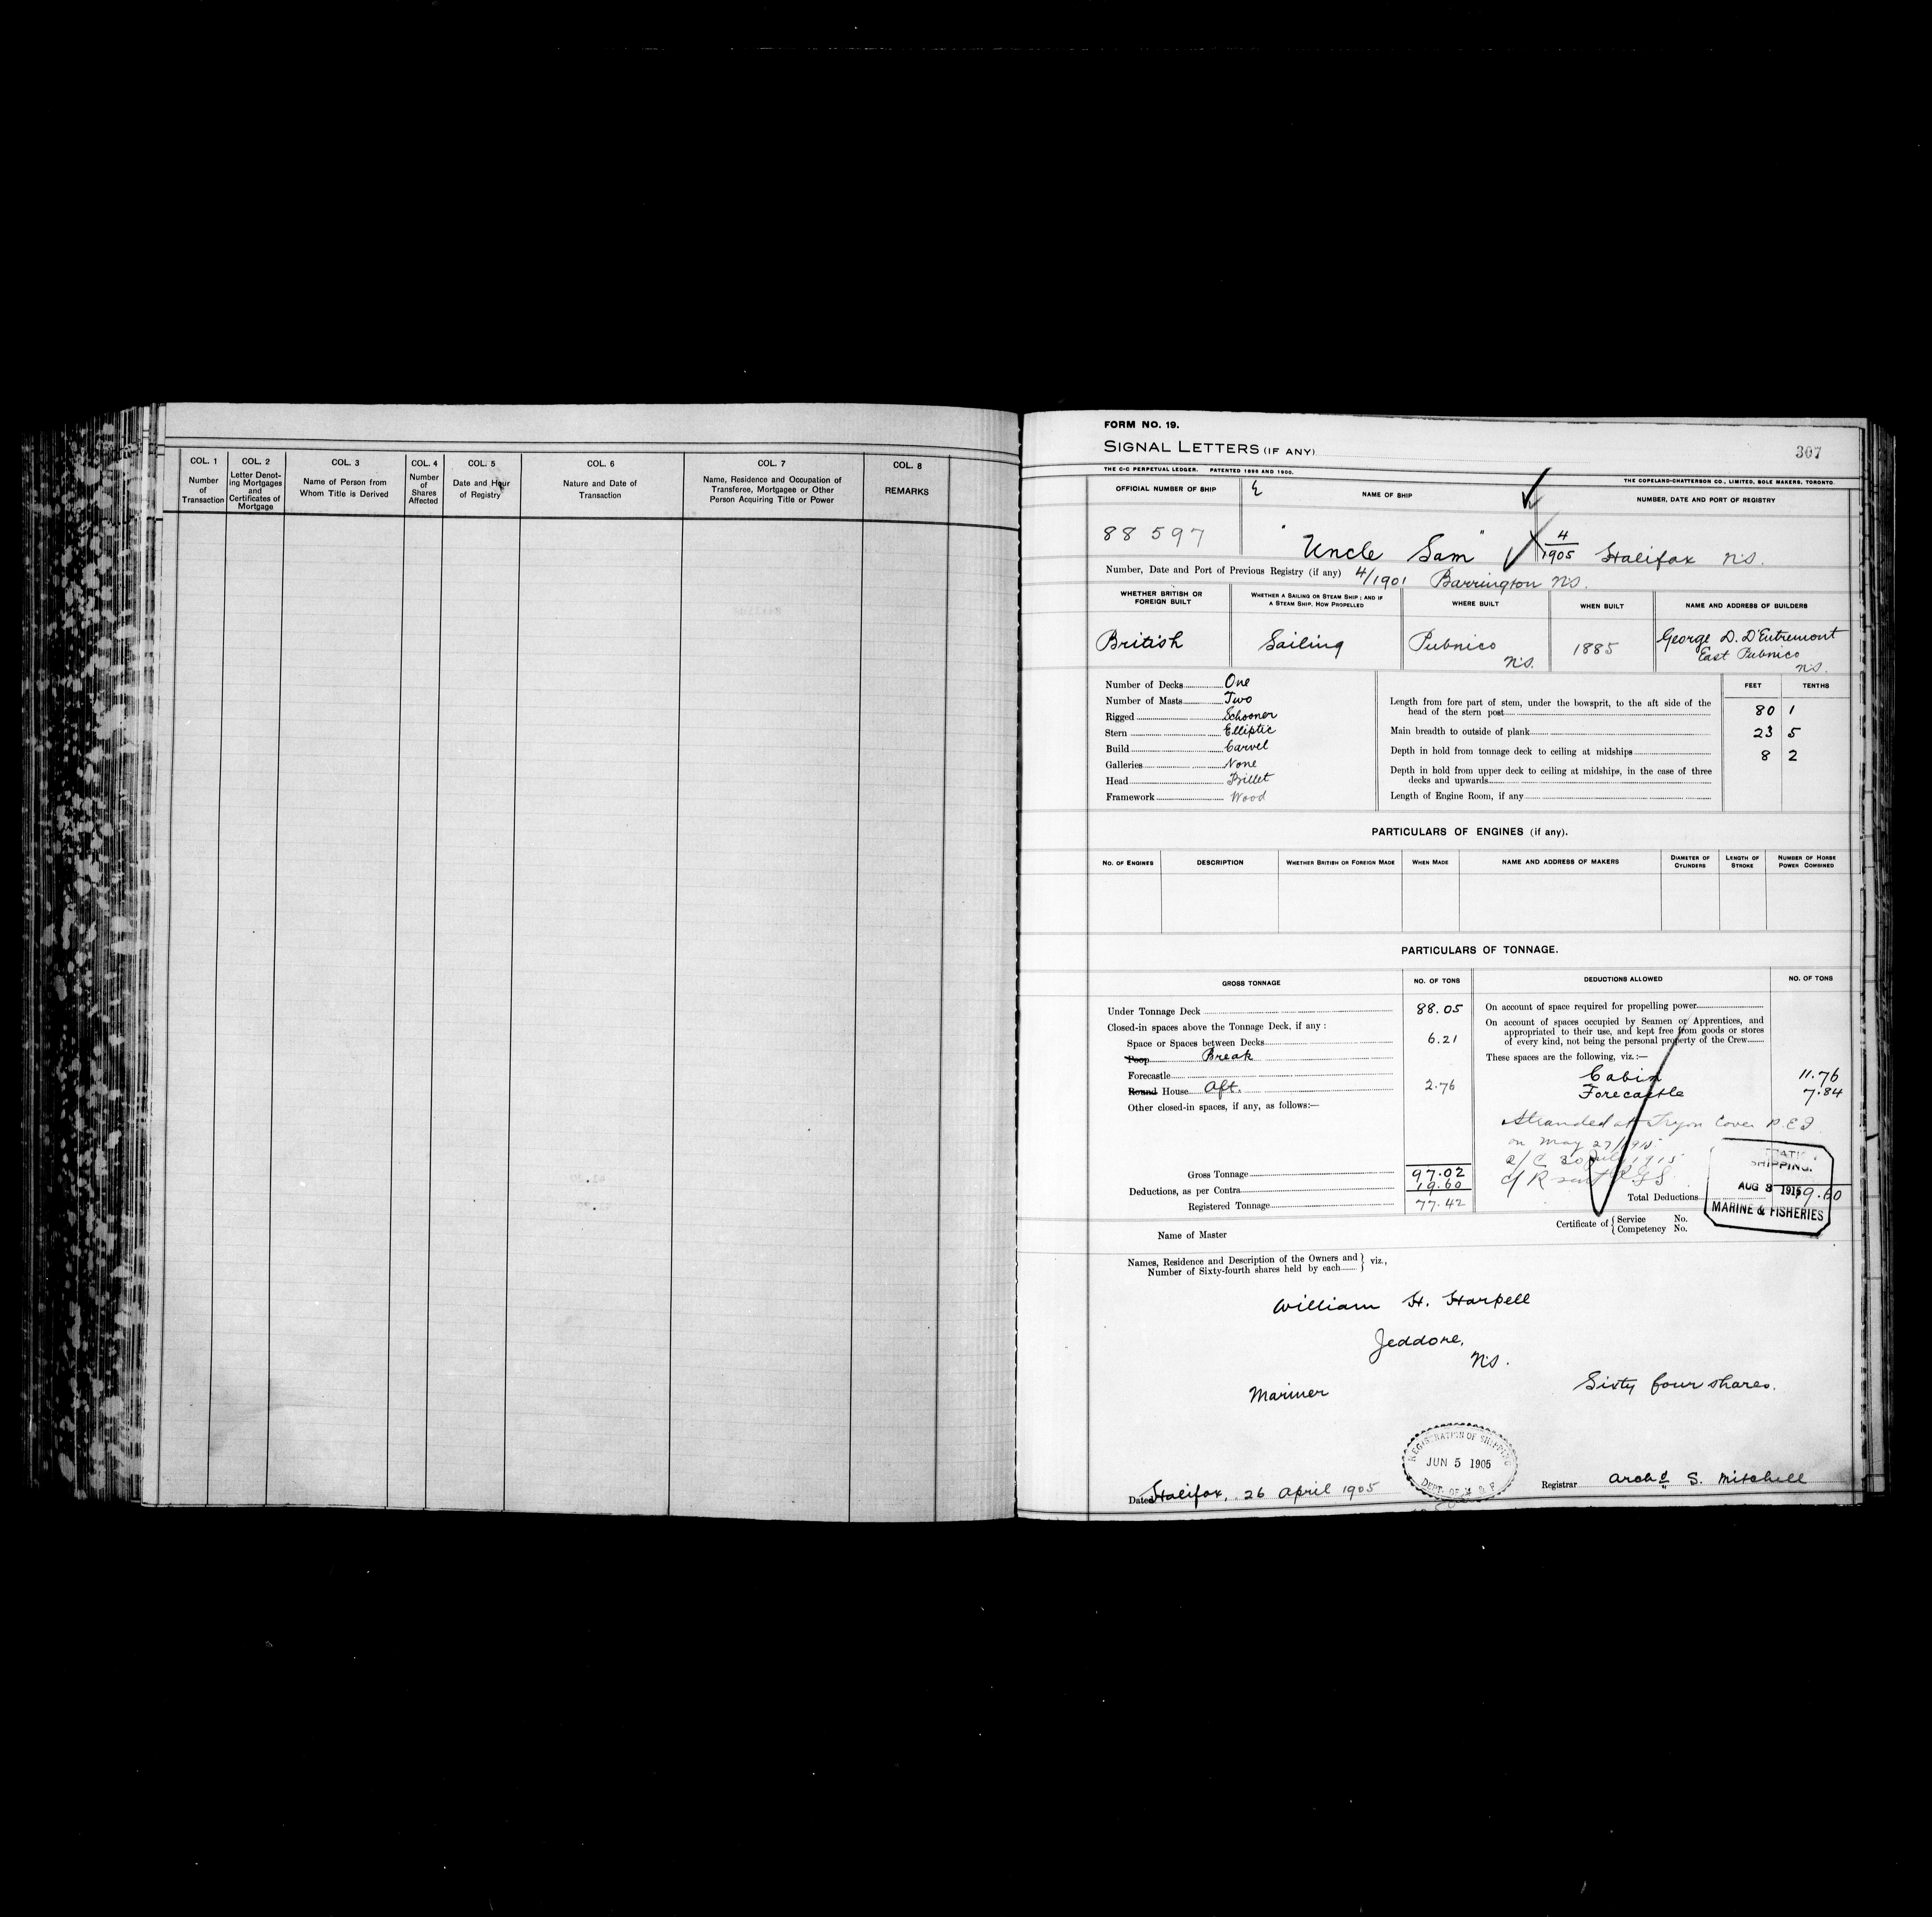 COL. 1
Number
of
Transaction
COL. 2
Letter Denot-
ing Mortgages
and
Certificates of
Mortgage
COL. 3
Name of Person from
Whom Title is Derived
COL. 4
Number
of
Shares
Affected
COL. 5
Date and Hour
of Registry
COL. 6
Nature and Date of
Transaction
COL. 7
Name, Residence and Occupation of
Transferee, Mortgagee or Other
Person Acquiring Title or Power
COL. 8
REMARKS
FORM NO. 19.
SIGNAL LETTERS (IF ANY)
307
THE C-C PERPETUAL LEDGER. PATENTED 1896 AND 1900.
THE COPELAND-CHATTERSON CO., LIMITED, SOLE MAKERS, TORONTO.
OFFICIAL NUMBER OF SHIP
NAME OF SHIP
NUMBER, DATE AND PORT OF REGISTRY
88597
"Uncle Sam"
4/1905 Halifax N.S.
Number, Date and Port of Previous Registry (if any) 4/1901 Barrington N.S.
WHETHER BRITISH OR
FOREIGN BUILT
WHETHER A SAILING OR STEAM SHIP; AND IF
A STEAM SHIP, HOW PROPELLED
WHERE BUILT
WHEN BUILT
NAME AND ADDRESS OF BUILDERS
British
Sailing
Pubnico
N.S.
1885
George D. D'Entremont
East Pubnico
N.S.
Number of Decks One
Number of Masts Two
Rigged Schooner
Stern Elliptic
Build Carvel
Galleries None
Head Billet
Framework Wood
FEET TENTHS
Length from fore part of stem, under the bowsprit, to the aft side of the
head of the stern post 80 1
Main breadth to outside of plank 23 5
Depth in hold from tonnage deck to ceiling at midships 8 2
Depth in hold from upper deck to ceiling at midships, in the case of three
decks and upwards
Length of Engine Room, if any
PARTICULARS OF ENGINES (if any).
NO. OF ENGINES
DESCRIPTION
WHETHER BRITISH OR FOREIGN MADE
WHEN MADE
NAME AND ADDRESS OF MAKERS
DIAMETER OF
CYLINDERS
LENGTH OF
STROKE
NUMBER OF HORSE
POWER COMBINED
PARTICULARS OF TONNAGE.
GROSS TONNAGE
NO. OF TONS
DEDUCTIONS ALLOWED
NO. OF TONS
Under Tonnage Deck 88.05
Closed-in spaces above the Tonnage Deck, if any:
Space or Spaces between Decks 6.21
Poop Break
Forecastle
Round House Aft. 2.76
Other closed-in spaces, if any, as follows:—
Gross Tonnage 97.02
Deductions, as per Contra 19.60
Registered Tonnage 77.42
On account of space required for propelling power
On account of spaces occupied by Seamen or Apprentices, and
appropriated to their use, and kept free from goods or stores
of every kind, not being the personal property of the Crew
These spaces are the following, viz.:—
Cabin 11.76
Forecastle 7.84
Stranded at Tryon Cove P.E.I.
on May 27/1915
R/C 30 July 1915
Total Deductions 19.60
SHIPPING.
AUG 3 1915
MARINE & FISHERIES
Name of Master
Certificate of { Service No.
Competency No.
Names, Residence and Description of the Owners and
Number of Sixty-fourth shares held by each } viz.,
William H. Harpell
Jeddore,
N.S.
Mariner
Sixty four shares.
REGISTRATION OF SHIPPING
JUN 5 1905
DEPT. OF M & F
Dated Halifax, 26 April 1905
Registrar Archd S. Mitchell